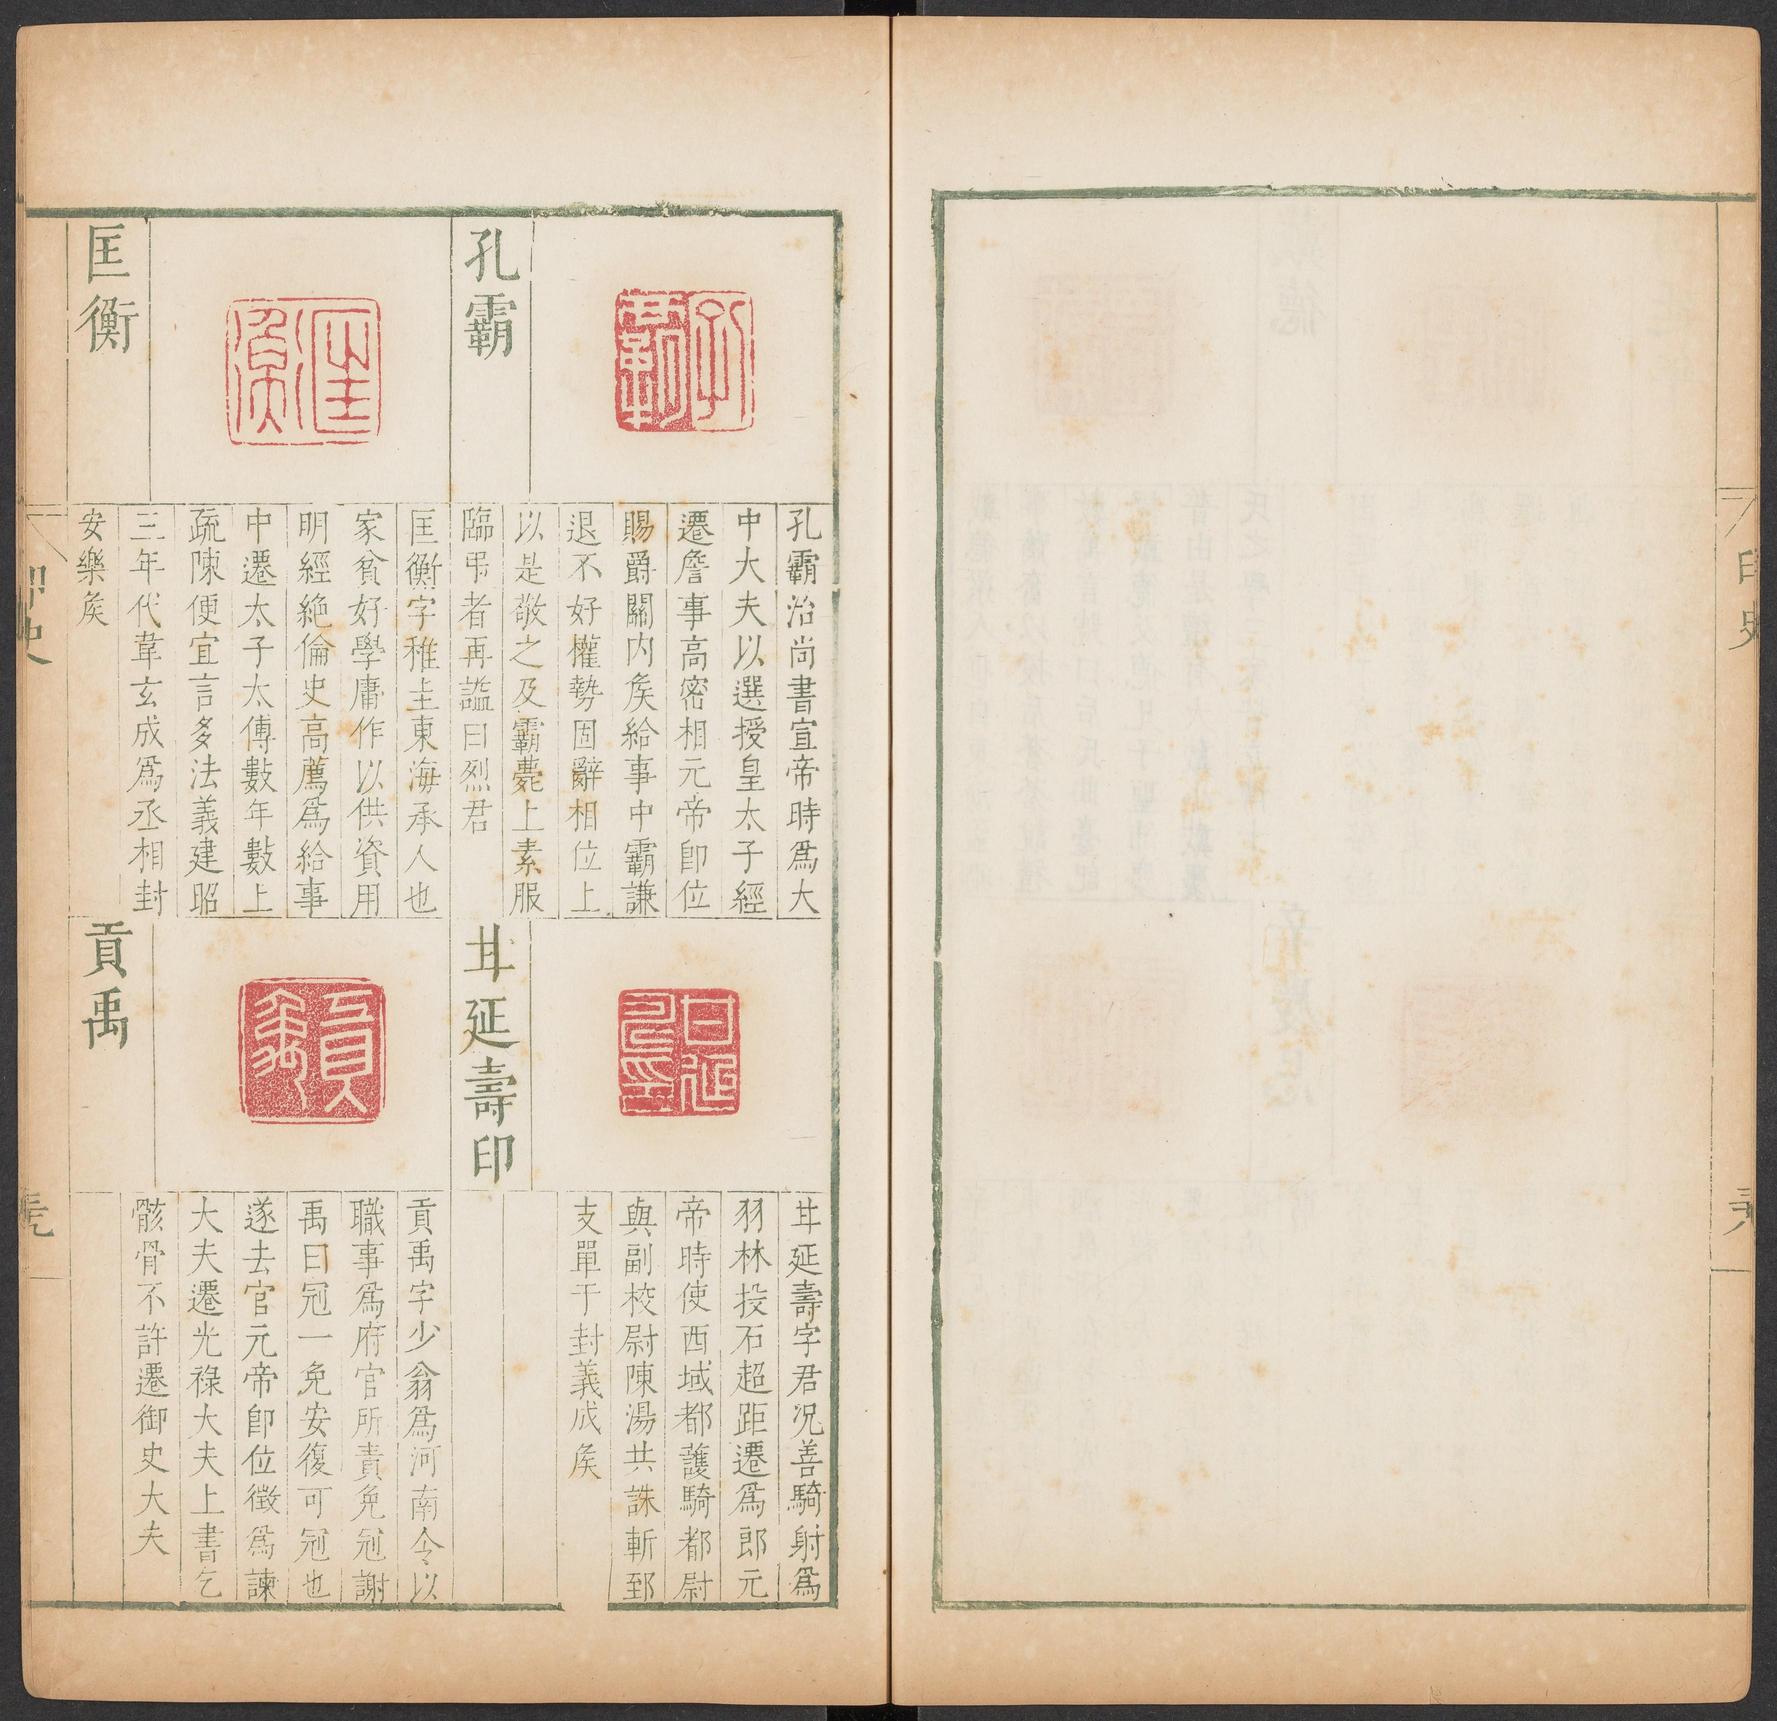 印史
孔霸
孔霸治尚書宣帝時爲大
中大夫以選授皇太子經
遷詹事高密相元帝卽位
賜爵關内矦給事中霸謙
退不好權勢固辭相位上
以是敬之及霸薨上素服
臨弔者再謚曰烈君
匡衡
匡衡字稚圭東海承人也
家貧好學庸作以供資用
明經絶倫史高薦爲給事
中遷太子太傅數年數上
疏陳便宜言多法義建昭
三年代韋玄成爲丞相封
安樂矦
甘延壽印
甘延壽字君况善騎射爲
羽林投石超距遷爲郎元
帝時使西域都護騎都尉
與副校尉陳湯共誅斬郅
支單于封義成矦
貢禹
貢禹字少翁爲河南令以
職事爲府官所責免冠謝
禹曰冠一免安復可冠也
遂去官元帝卽位徵爲諫
大夫遷光祿大夫上書乞
骸骨不許遷御史大夫
印史